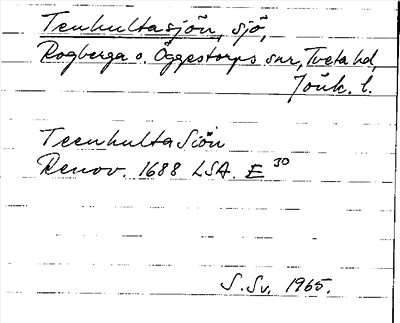 Tenhultasjön, sjö,
Rogberga o. Öggestorps snr, Tveta hd,
Jönk. l.
Teenhulta Siön
Renov. 1688 LSA. E 30
S. Sv. 1965.